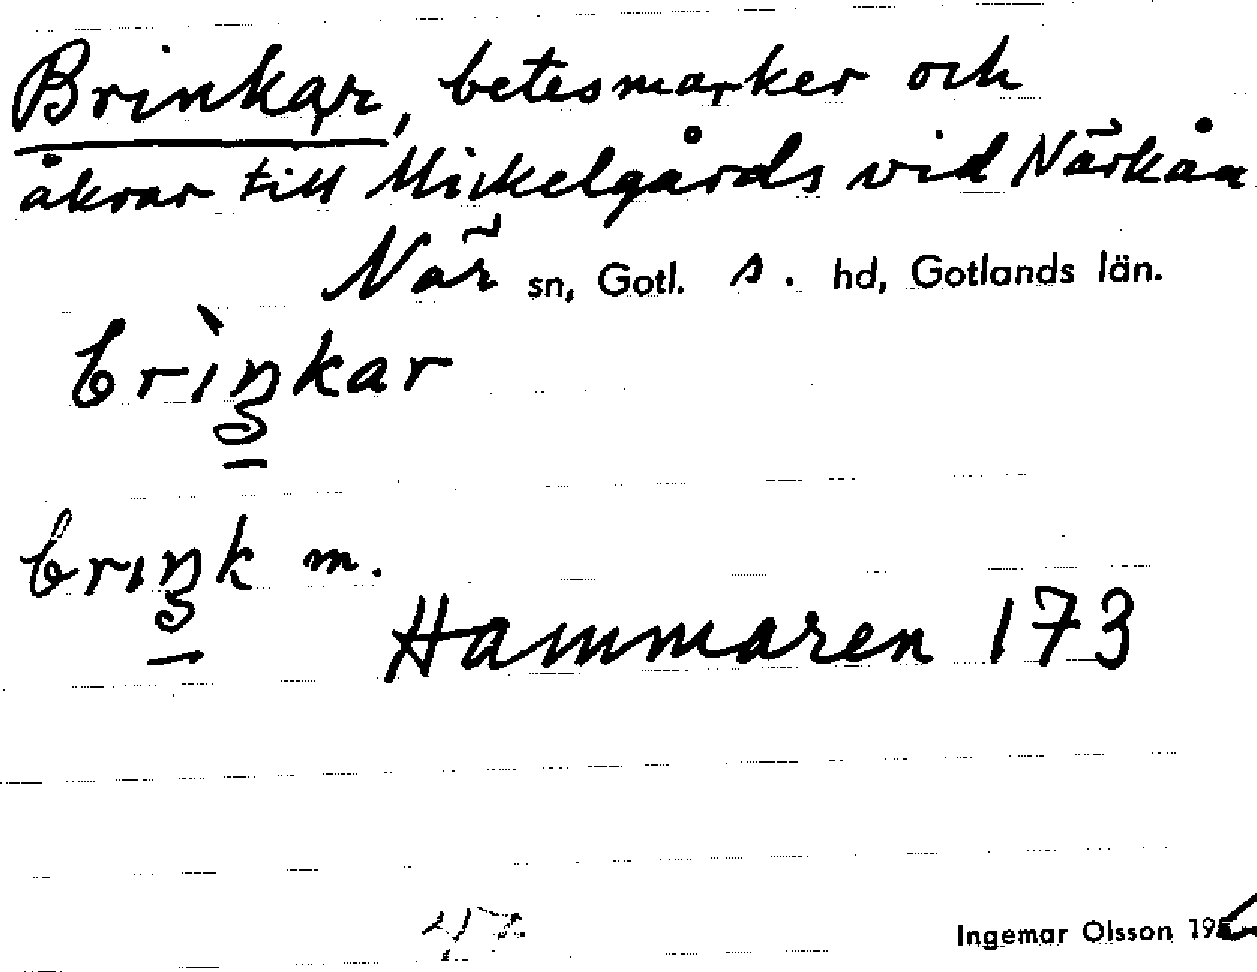 Brinkar, betesmarker och
åkrar till Mickelgårds vid Närkån
När sn, Gotl. s. hd, Gotlands län.
brìŋkar
briŋk m.
Hammaren 173
Ingemar Olsson